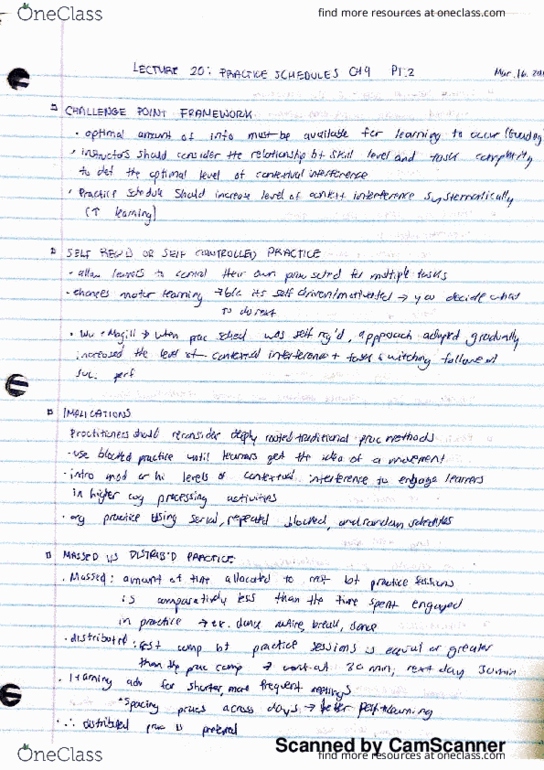 OneClass
find more resources at oneclass.com
LECTURE 20: PRACTICE SCHEDULES CH9 PT.2
Mar. 16.
CHALLENGE POINT FRAMEWORK
• optimal amount of info must be available for learning to occur
• instructors should consider the relationship bt skill level and task complexity
to det the optimal level of contextual interference
• Practice schedule should increase level of context interference systematically
(↑ learning)
SELF REG'D OR SELF CONTROLLED PRACTICE
• allow learners to control their own prac sched for multiple tasks
motor learning → b/c its self driven/motivated → you decide what
to do next
• Wu + Magill → when prac sched was self reg'd, approach adopted gradually
increased the level of contextual interference + task switching followed
suc. perf
IMPLICATIONS
Practitioners should reconsider deeply rooted traditional prac methods
• use blocked practice until learners get the idea of a movement
• intro mod or hi levels of contextual interference to engage learners
in higher cog processing activities
• org practice using serial, repeated blocked, and random schedules
MASSED VS DISTRIB'D PRACTICE
• Massed: amount of time allocated to rest bt practice sessions
is comparatively less than the time spent engaged
in practice → ex. dance routine, break, dance
• distributed: rest comp bt practice sessions is equal or greater
than the prac comp → workout 30 min, next day 30min
• learning adv for shorter, more frequent meetings
*Spacing pracs across days → better perf + learning
• ∴ distributed prac is preferred
Scanned by CamScanner
OneClass
find more resources at oneclass.com